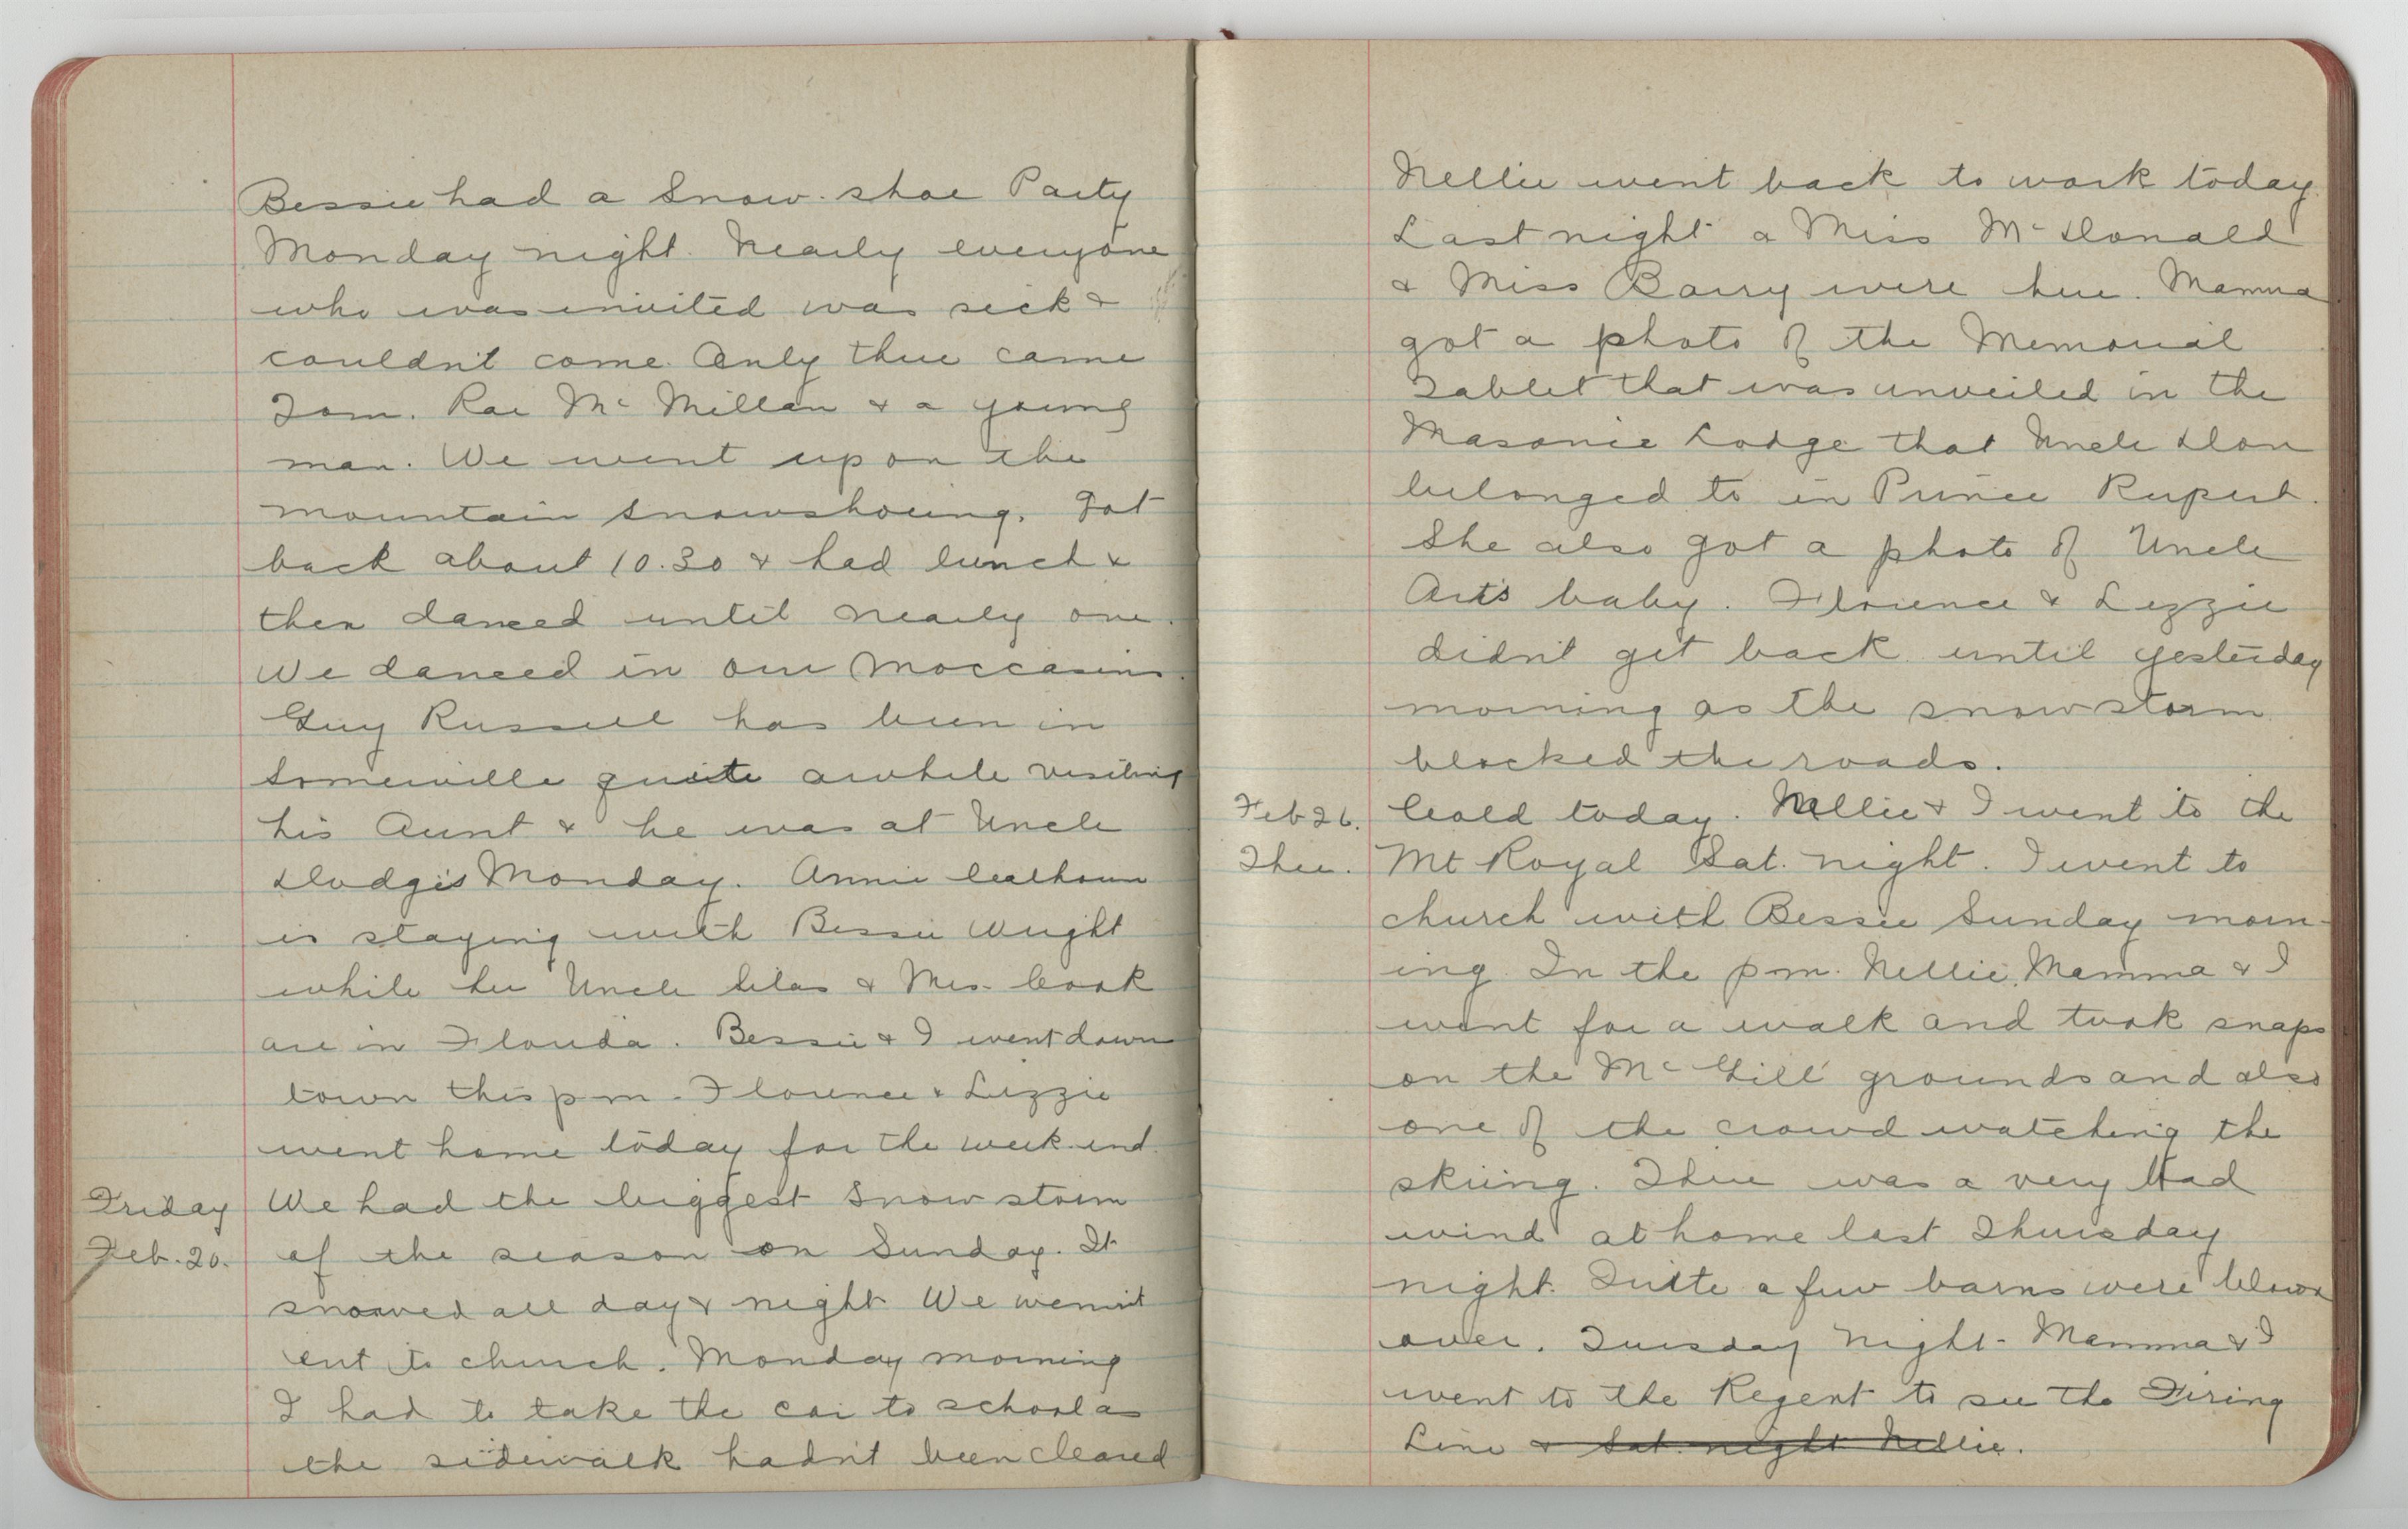 Bessie had a Snow-shoe Party
Monday night. Nearly everyone
who was invited was sick &
couldn't come. Only three came
Tom. Rae Mc Millan & a young
man. We went up on the
mountain snowshoeing. Got
back about 10.30 & had lunch &
then danced until nearly one.
We danced in our moccasins.
Guy Russell has been in
Somerville quite awhile visiting
his Aunt & he was at Uncle
Dodge's Monday. Annie Calhoun
is staying with Bessie Wright
while her Uncle Silas & Mrs. Cook
are in Florida. Bessie & I went down
town this pm. Florence & Lizzie
went home today for the week-end.
Friday We had the biggest Snow storm
Feb. 20. of the season on Sunday. It
snowed all day & night We weren't
out to church. Monday morning
I had to take the car to school as
the sidewalk hadn't been cleared
Nellie went back to work today.
Last night a Miss Mc Donald
& Miss Barry were here. Mamma
got a photo of the Memorial
Tablet that was unveiled in the
Masonic Lodge that Uncle Don
belonged to in Prince Rupert.
She also got a photo of Uncle
Art's baby. Florence & Lizzie
didn't get back until yesterday
morning as the snow storm
blocked the roads.
Feb 26. Cold today. Nellie & I went to the
Thu. Mt Royal Sat. night. I went to
church with Bessie Sunday morn-
ing. In the pm. Nellie, Mamma & I
went for a walk and took snaps
on the Mc Gill grounds and also
one of the crowd watching the
skiing. There was a very Had
wind at home last Thursday
night. Quite a few barns were blown
over. Tuesday night - Mamma & I
went to the Regent to see the Firing
Line & Sat. night Nellie.